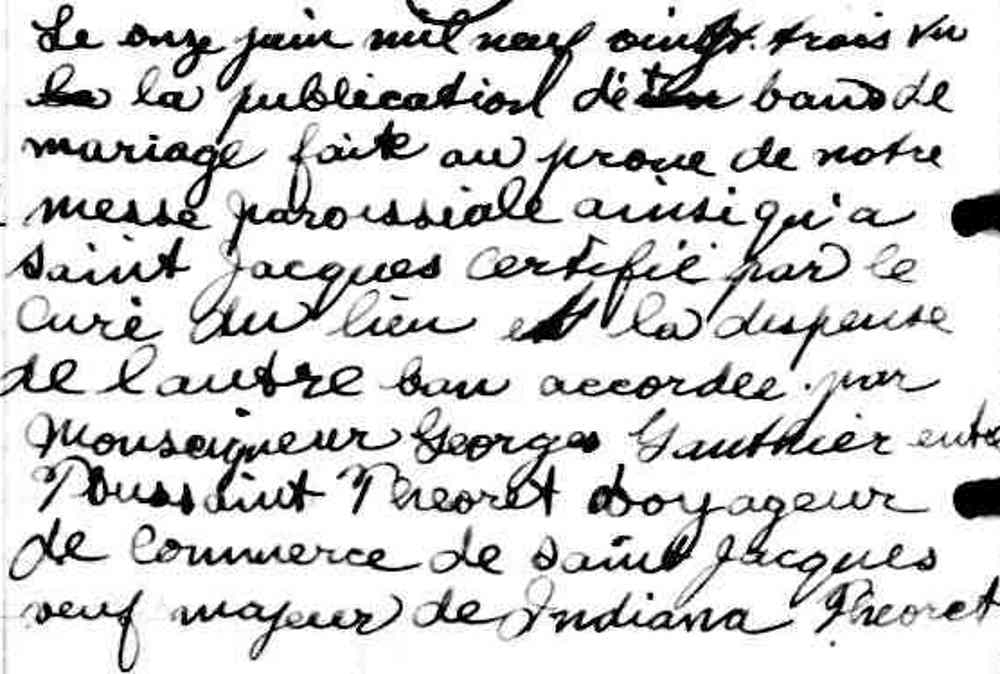 Le onze juin mil neuf vingt. trois vu
la publication de bans de
mariage faite au prone de notre
messe paroissiale ainsi qu'a
saint Jacques certifié par le
curé du lieu et la dispense
de l'autre ban accordée par
Monseigneur Georges Gauthier entre
Toussaint Theoret voyageur
de commerce de saint Jacques
veuf majeur de Indiana Theoret